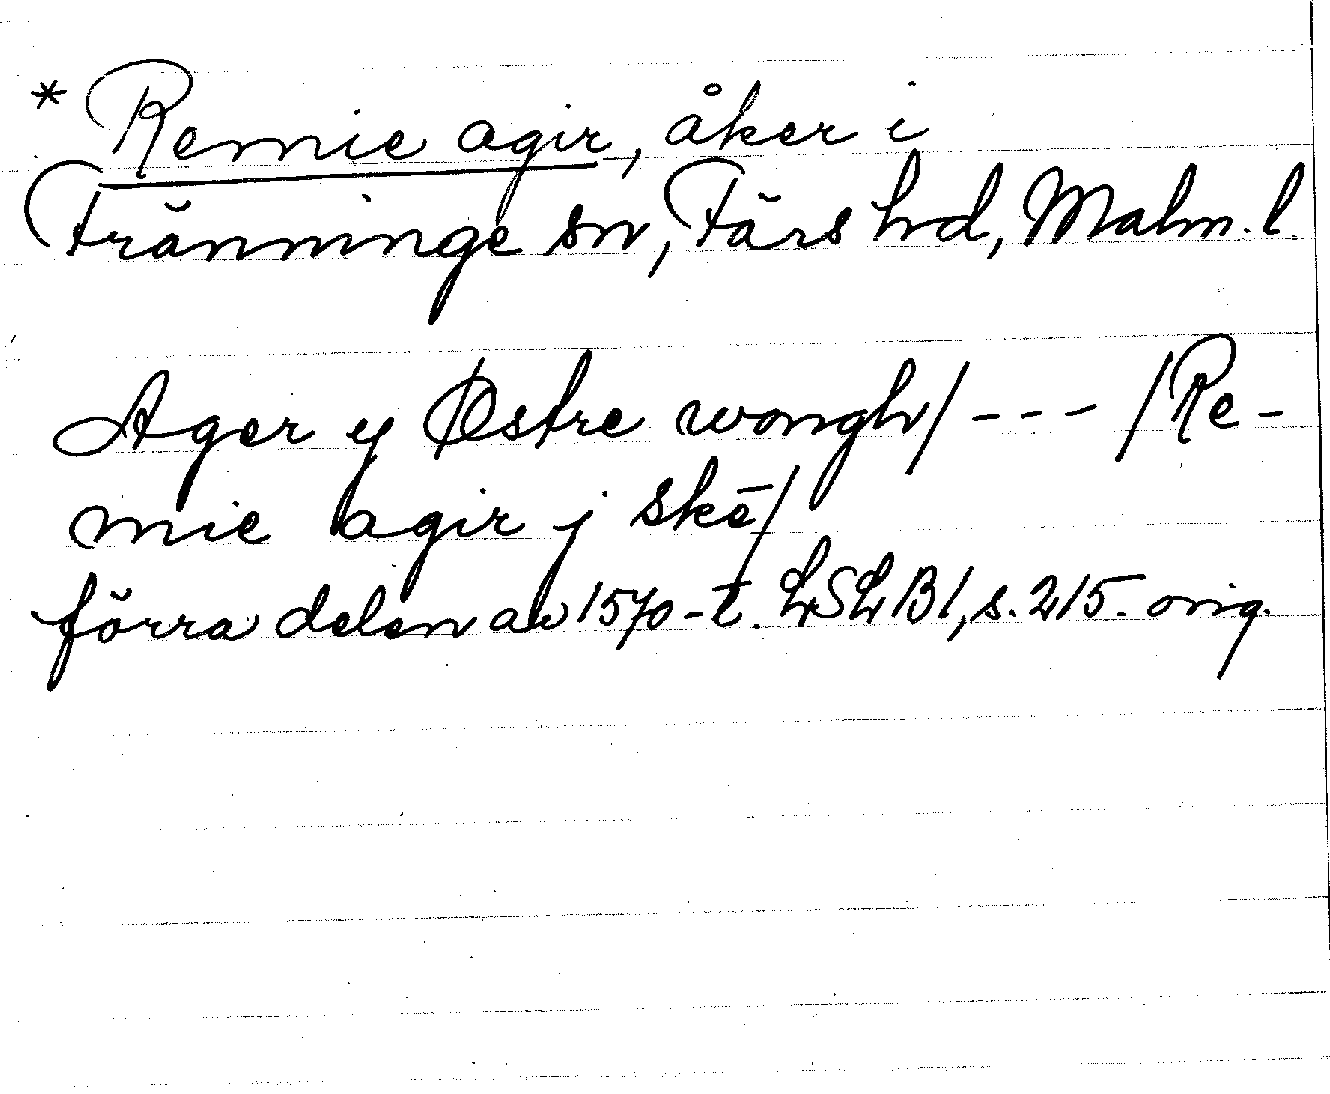 * Remie agir, åker i
Fränninge sn, Färs hd, Malm. l.
Ager y Østre wongh/ - - - /Re-
mie agir j skē/
förra delen av 1570-t. LSLB1, s. 215. orig.